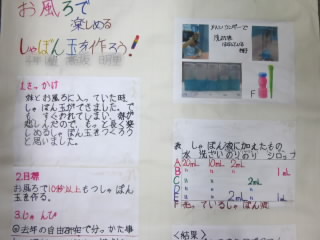 お風ろで
楽しめる
しゃぼん玉を作ろう!
1.きっかけ
妹とお風ろに入っていた時、
しゃぼん玉ができました。で
も、すぐにわれてしまい、妹が
悲しんだので、もっと長く楽
しめるしゃぼん玉をつくろう
と思いました。
2.目標
お風ろで10秒以上もつしゃぼん
玉を作る。
3.じゅんび
@去年の自由研究で分かった事
F
表 しゃぼん液に加えたもの
水 洗ざいのり のり シロップ
A 20mL 10mL 2mL
B 〃 〃 1mL
C 〃 〃 2mL
D 〃 〃
E 〃 〃 2mL 1mL
F 売っているしゃぼん液
<結果>